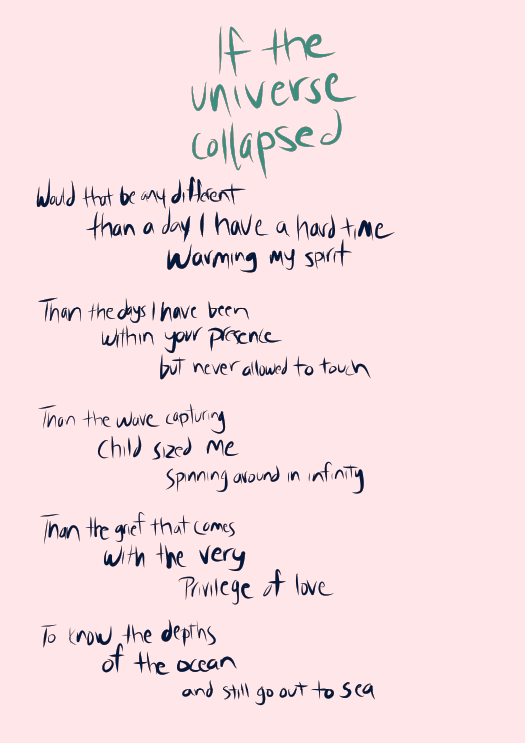 If the
universe
collapsed
Would that be any different
than a day I have a hard time
Warming my spirit
Than the days I have been
within your presence
but never allowed to touch
Than the wave capturing
Child sized me
Spinning around in infinity
Than the grief that comes
With the very
Privilege of love
To know the depths
of the ocean
and still go out to sea